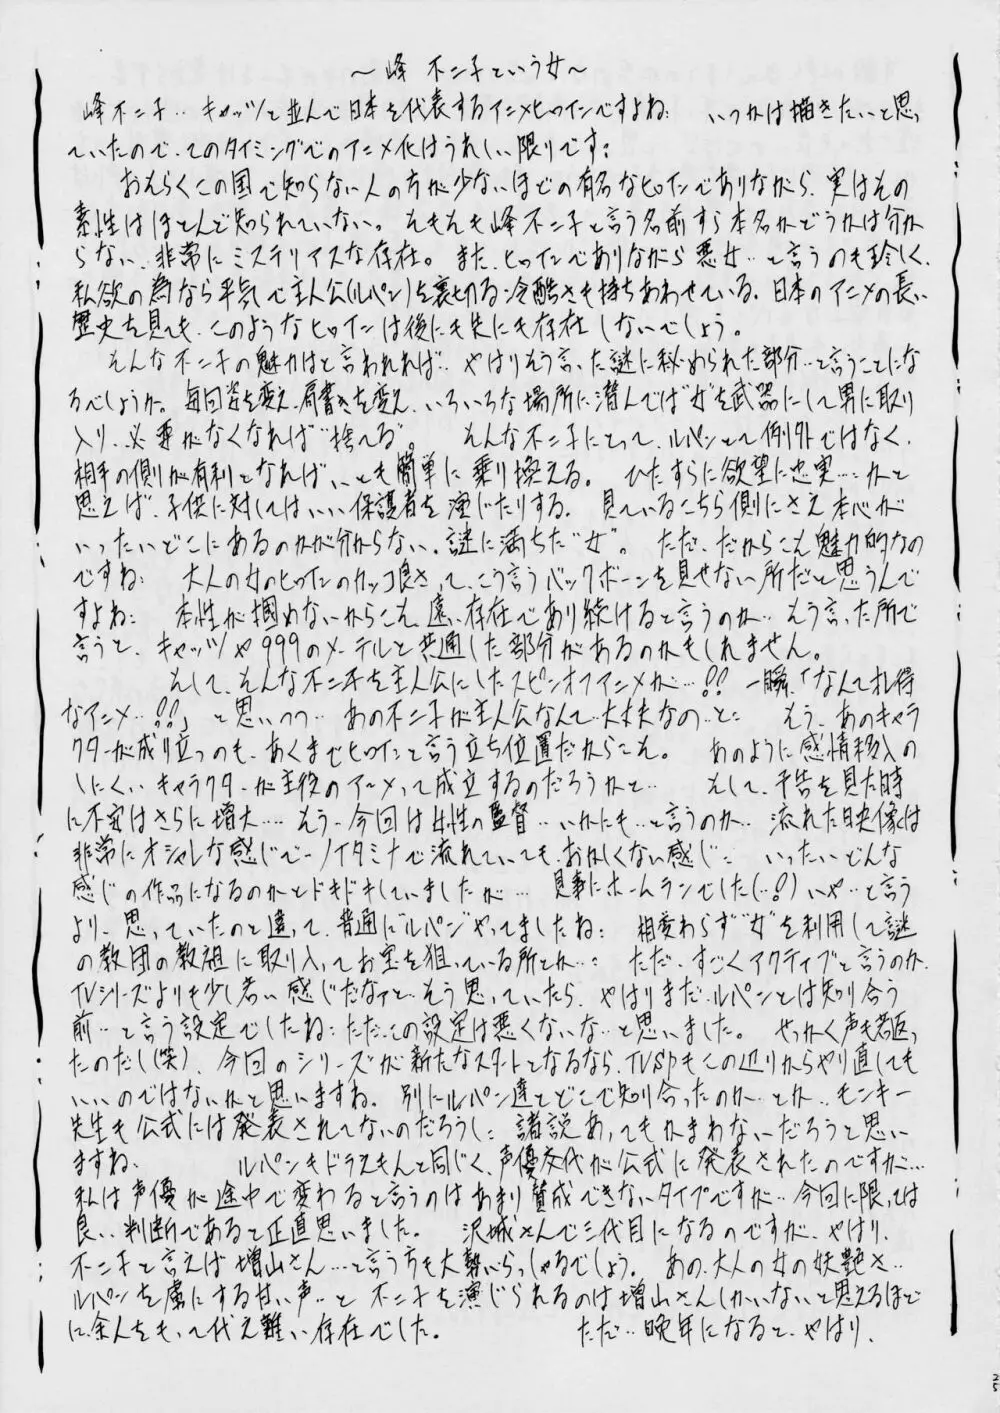 ～峰 不二子という女～
峰不二子‥キャッツと並んで日本を代表するアニメヒロインですよね： いつかは描きたいと思っ
ていたので、このタイミングでのアニメ化はうれしい限りです：
おそらくこの国で知らない人の方が少ないほどの有名なヒロインでありながら、実はその
素性はほとんど知られていない。そもそも峰不二子と言う名前すら本名かどうかは分か
らない、非常にミステリアスな存在。また、ヒロインでありながら悪女‥と言うのも珍しく、
私欲の為なら平気で主人公(ルパン)を裏切る冷酷さも持ちあわせている。日本のアニメの長い
歴史を見ても、このようなヒロインは後にも先にも存在しないでしょう。
そんな不二子の魅力はと言われれば‥やはりそう言った謎に秘められた部分‥と言うことにな
るでしょうか。毎回姿を変え、肩書きを変え、いろいろな場所に潜んでは“女”を武器にして男に取り
入り、必要がなくなれば“捨てる”。 そんな不二子にとって、ルパンとて例外ではなく、
相手の側が有利となれば、いとも簡単に乗り換える。 ひたすらに欲望に忠実…かと
思えば、子供に対してはいい保護者を演じたりする。 見ているこちら側にさえ本心が
いったいどこにあるのかが分からない、謎に満ちた“女”。 ただ、だからこそ魅力的なの
ですね： 大人の女のヒロインのカッコ良さって、こう言うバックボーンを見せない所だと思うんで
すよね： 本性が掴めないからこそ、遠い存在であり続けると言うのか…そう言った所で
言うと、キャッツや999のメーテルと共通した部分があるのかもしれません。
そして、そんな不二子を主人公にしたスピンオフアニメが…!! 一瞬、「なんてお得
なアニメ…!!」と思いつつ…あの不二子が主人公なんて…大丈夫なの…と： そう、あのキャラ
クターが成り立つのも、あくまでヒロインと言う立ち位置だからこそ。 あのように感情移入の
しにくいキャラクターが主役のアニメって成立するのだろうかと… そして、予告を見た時
に不安はさらに増大…そう、今回は女性の監督‥いかにも…と言うのか‥流れた映像は
非常にオシャレな感じで…ノイタミナで流れていても、おかしくない感じ： いったいどんな
感じの作品になるのかとドキドキしていましたが… 見事にホームランでした(…!)いや…と言う
より、思っていたのと違って、普通に“ルパン”やってましたね： 相変わらず“女”を利用して謎
の教団の教祖に取り入ってお宝を狙っている所とか…： ただ、すごくアクティブと言うのか、
TVシリーズよりも少し若い感じだなァと…そう思っていたら、やはりまだ、ルパンとは知り合う
前…と言う設定でしたね：ただ、この設定は悪くないな…と思いました。 せっかく声も若返っ
たのだし(笑)、今回のシリーズが新たなスタートとなるなら、TVSPもこの辺りからやり直しても
いいのではないかと思いますね。別にルパン達とどこで知り合ったのか‥とか‥モンキー
先生も公式には発表されてないのだろうし：諸説あってもかまわないだろうと思い
ますね。 ルパンもドラえもんと同じく、声優交代が公式に発表されたのですが…
私は声優が途中で変わると言うのはあまり賛成できないタイプですが‥今回に限っては
良い判断であると正直思いました。 沢城さんで三代目になるのですが、やはり、
不二子と言えば増山さん…と言う方も大勢いらっしゃるでしょう。 あの、大人の女の妖艶さ‥
ルパンを虜にする甘い声‥と 不二子を演じられるのは増山さんしかいないと思えるほど
に、余人をもって代え難い存在でした。 ただ‥晩年になると、やはり、
25